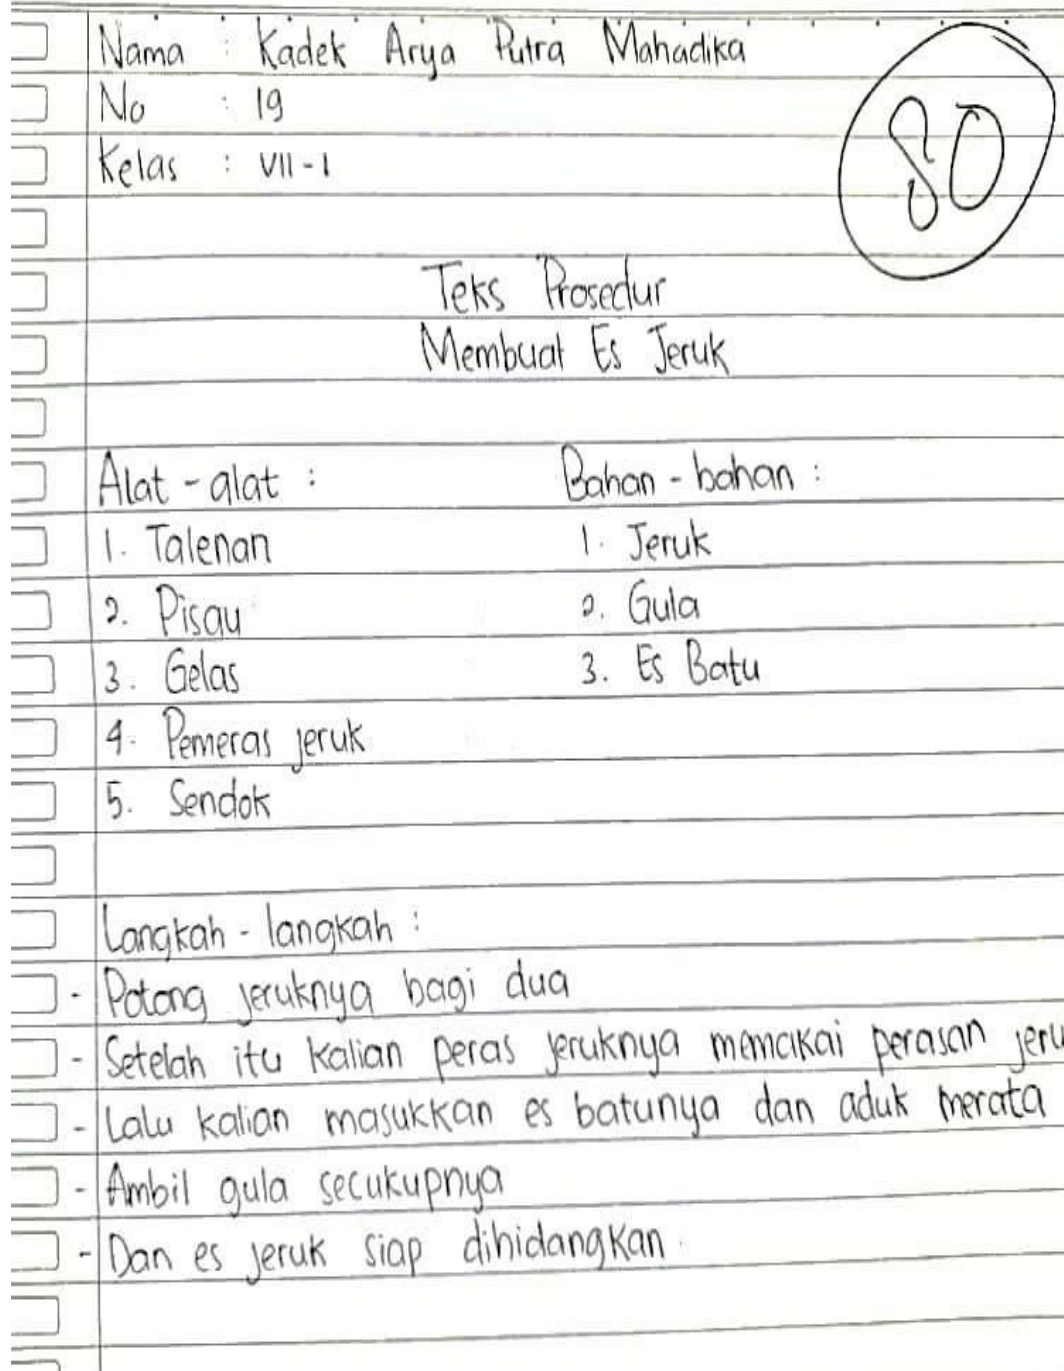 Nama : Kadek Arya Putra Mahadika
No : 19
Kelas : VII - 1
80
Teks Prosedur
Membuat Es Jeruk
Alat - alat :
1. Talenan
2. Pisau
3. Gelas
4. Pemeras jeruk
5. Sendok
Bahan - bahan :
1. Jeruk
2. Gula
3. Es Batu
Langkah - langkah :
- Potong jeruknya bagi dua
- Setelah itu kalian peras jeruknya memakai perasan jeru
- Lalu kalian masukkan es batunya dan aduk merata
- Ambil gula secukupnya
- Dan es jeruk siap dihidangkan.